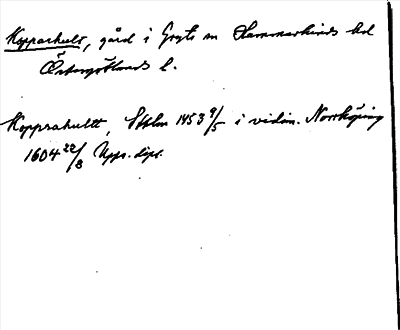 Kopparhult, gård i Gryts sn Hammarkinds hd
Östergötlands l.
Kopprahultt, Sthlm 1453 9/5 i vidim. Norrköping
1604 22/8 Upps. dipl.